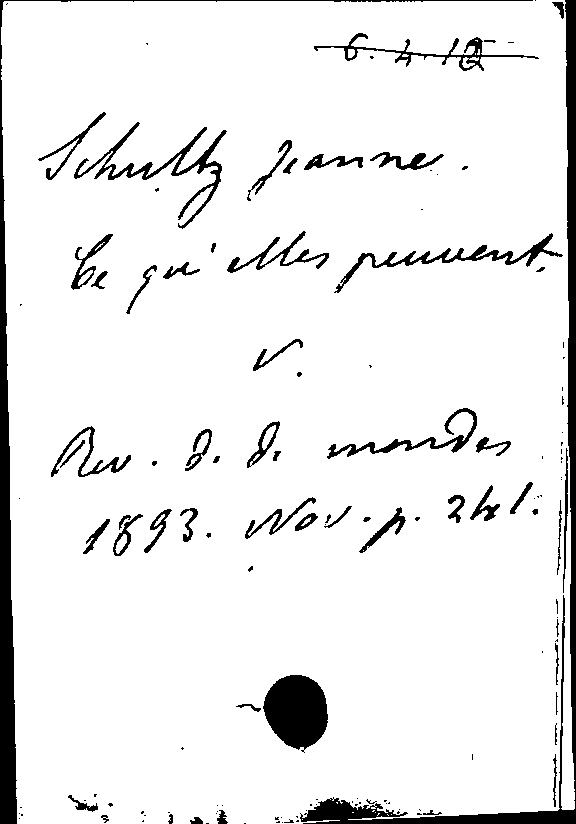 6.4.12
Schultz Jeanne.
Ce qu'elles peuvent.
v.
Rev. d. d. mondes
1893. Nov. p. 241.